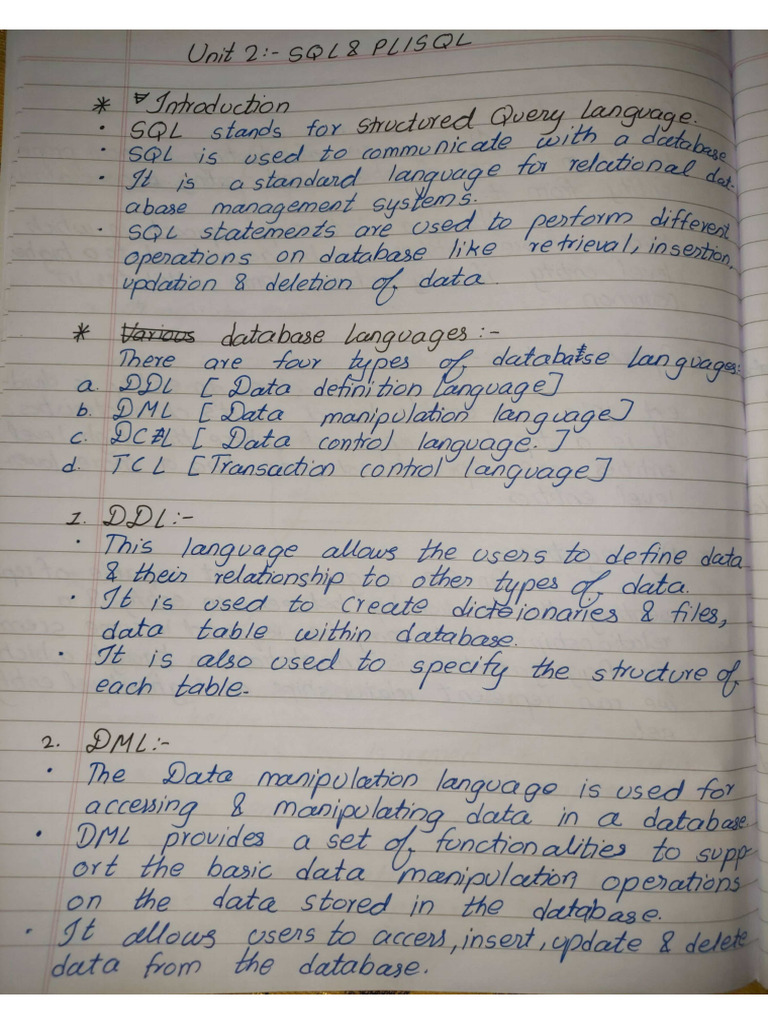 Unit 2:- SQL & PL/SQL
* Introduction
• SQL stands for Structured Query Language.
• SQL is used to communicate with a database
• It is a standard language for relational dat-
abase management systems.
• SQL statements are used to perform different
operations on database like retrieval, insertion,
updation & deletion of data.
* Various database languages:-
There are four types of database languages:
a. DDL [Data definition language]
b. DML [Data manipulation language]
c. DCL [Data control language.]
d. TCL [Transaction control language]
1. DDL:-
• This language allows the users to define data
& their relationship to other types of data.
• It is used to create dictionaries & files,
data table within database.
• It is also used to specify the structure of
each table.
2. DML:-
• The Data manipulation language is used for
accessing & manipulating data in a database
• DML provides a set of functionalities to supp-
ort the basic data manipulation operations
on the data stored in the database.
• It allows users to access, insert, update & delete
data from the database.